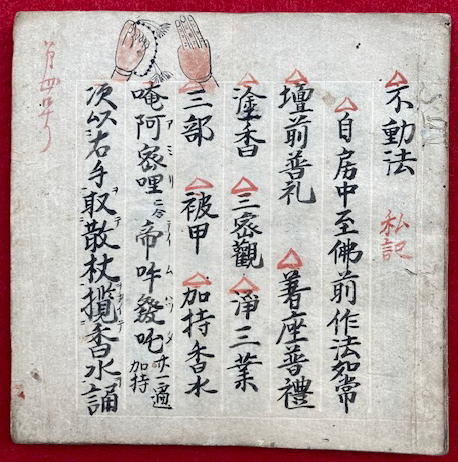 不動法 私記
自房中至佛前作法如常
壇前普礼 着座普禮
塗香 三密觀 淨三業
三部 被甲 加持香水
唵阿密哩二合帝吽發吒 廿一遍 加持
アミリテイムハッタ
次以右手取散杖攪香水誦